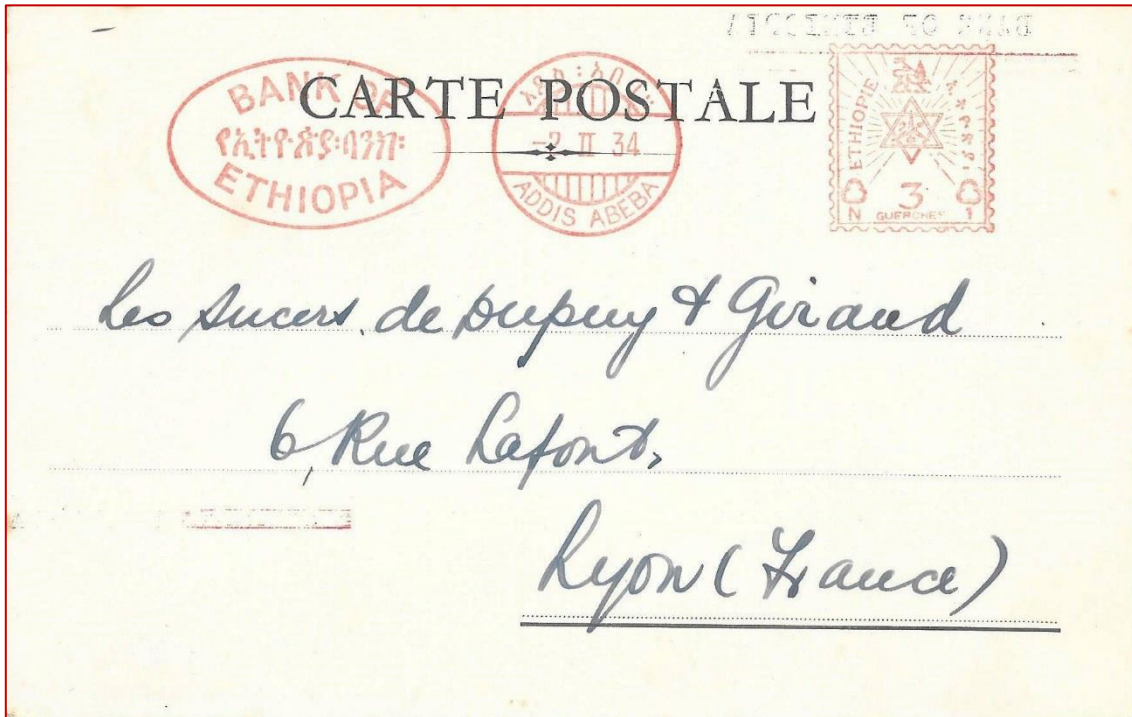 CARTE POSTALE
BANK OF
የኢትዮጵያ፡ባንክ፡
ETHIOPIA
አዲስ፡አበባ
-2 II 34
ADDIS ABEBA
ETHIOPIE
ኢትዮጵያ
3
N GUERCHES 1
Les Sucers. de Dupuy & Giraud
6, Rue Lafont,
Lyon (France)